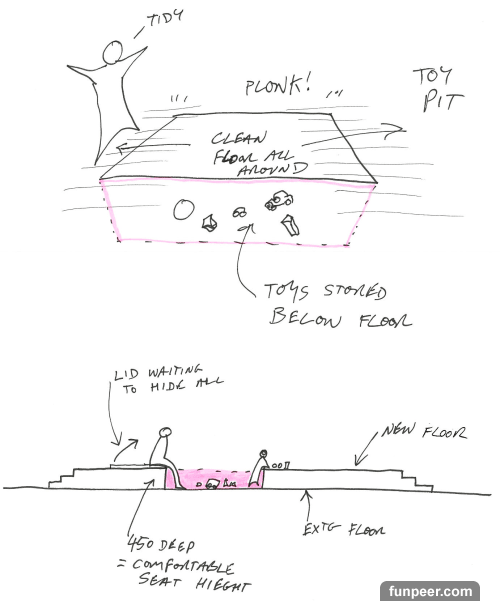 TIDY
PLONK!
TOY
PIT
CLEAN
FLOOR ALL
AROUND
TOYS STORED
BELOW FLOOR
LID WAITING
TO HIDE ALL
NEW FLOOR
EXTG FLOOR
450 DEEP
= COMFORTABLE
SEAT HIEGHT
funpeer.com